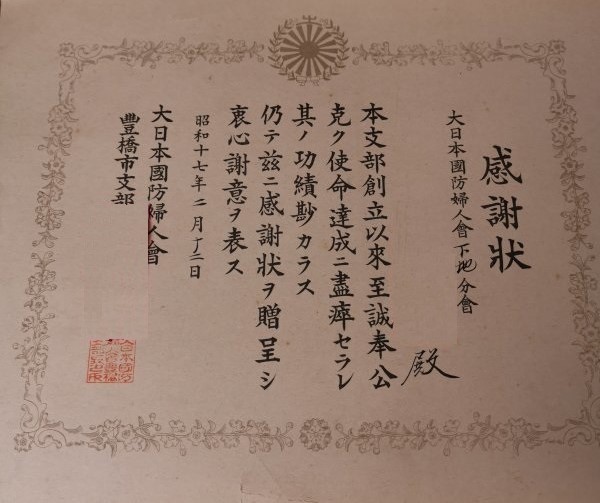 感謝狀
大日本國防婦人會下地分會
殿
本支部創立以來至誠奉公
克ク使命達成ニ盡瘁セラレ
其ノ功績尠カラス
仍テ茲ニ感謝狀ヲ贈呈シ
衷心謝意ヲ表ス
昭和十七年二月十二日
大日本國防婦人會
豊橋市支部